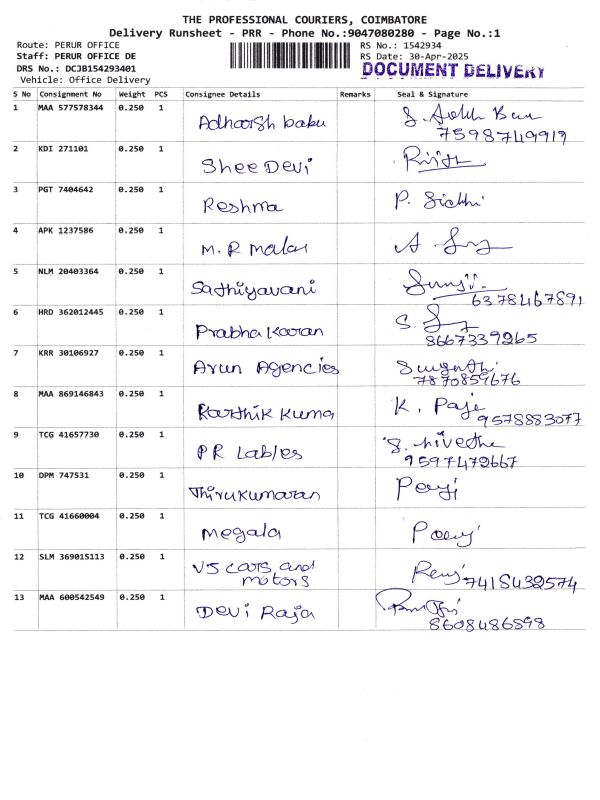 THE PROFESSIONAL COURIERS, COIMBATORE
Delivery Runsheet - PRR - Phone No.:9047080280 - Page No.:1
Route: PERUR OFFICE
Staff: PERUR OFFICE DE
DRS No.: DCJB154293401
Vehicle: Office Delivery
RS No.: 1542934
RS Date: 30-Apr-2025
DOCUMENT DELIVERY
S No Consignment No Weight PCS Consignee Details Remarks Seal & Signature
1 MAA 577578344 0.250 1 Adhaarsh babu
7598749919
2 KDI 271101 0.250 1 Shee Devi
3 PGT 7404642 0.250 1 Reshma P.
4 APK 1237586 0.250 1 M. R Malar A
5 NLM 20403364 0.250 1 Sathiyavani
6378467891
6 HRD 362012445 0.250 1 Prabha Karan S.
8667339265
7 KRR 30106927 0.250 1 Arun Agencies
7870859676
8 MAA 869146843 0.250 1 Karthik Kumar K.
9578883077
9 TCG 41657730 0.250 1 PR Lables
9597479667
10 DPM 747531 0.250 1 Thirukumaran
11 TCG 41660004 0.250 1 Megala
12 SLM 369015113 0.250 1 VS cars and motors
7418432574
13 MAA 600542549 0.250 1 Devi Raja
8608486898